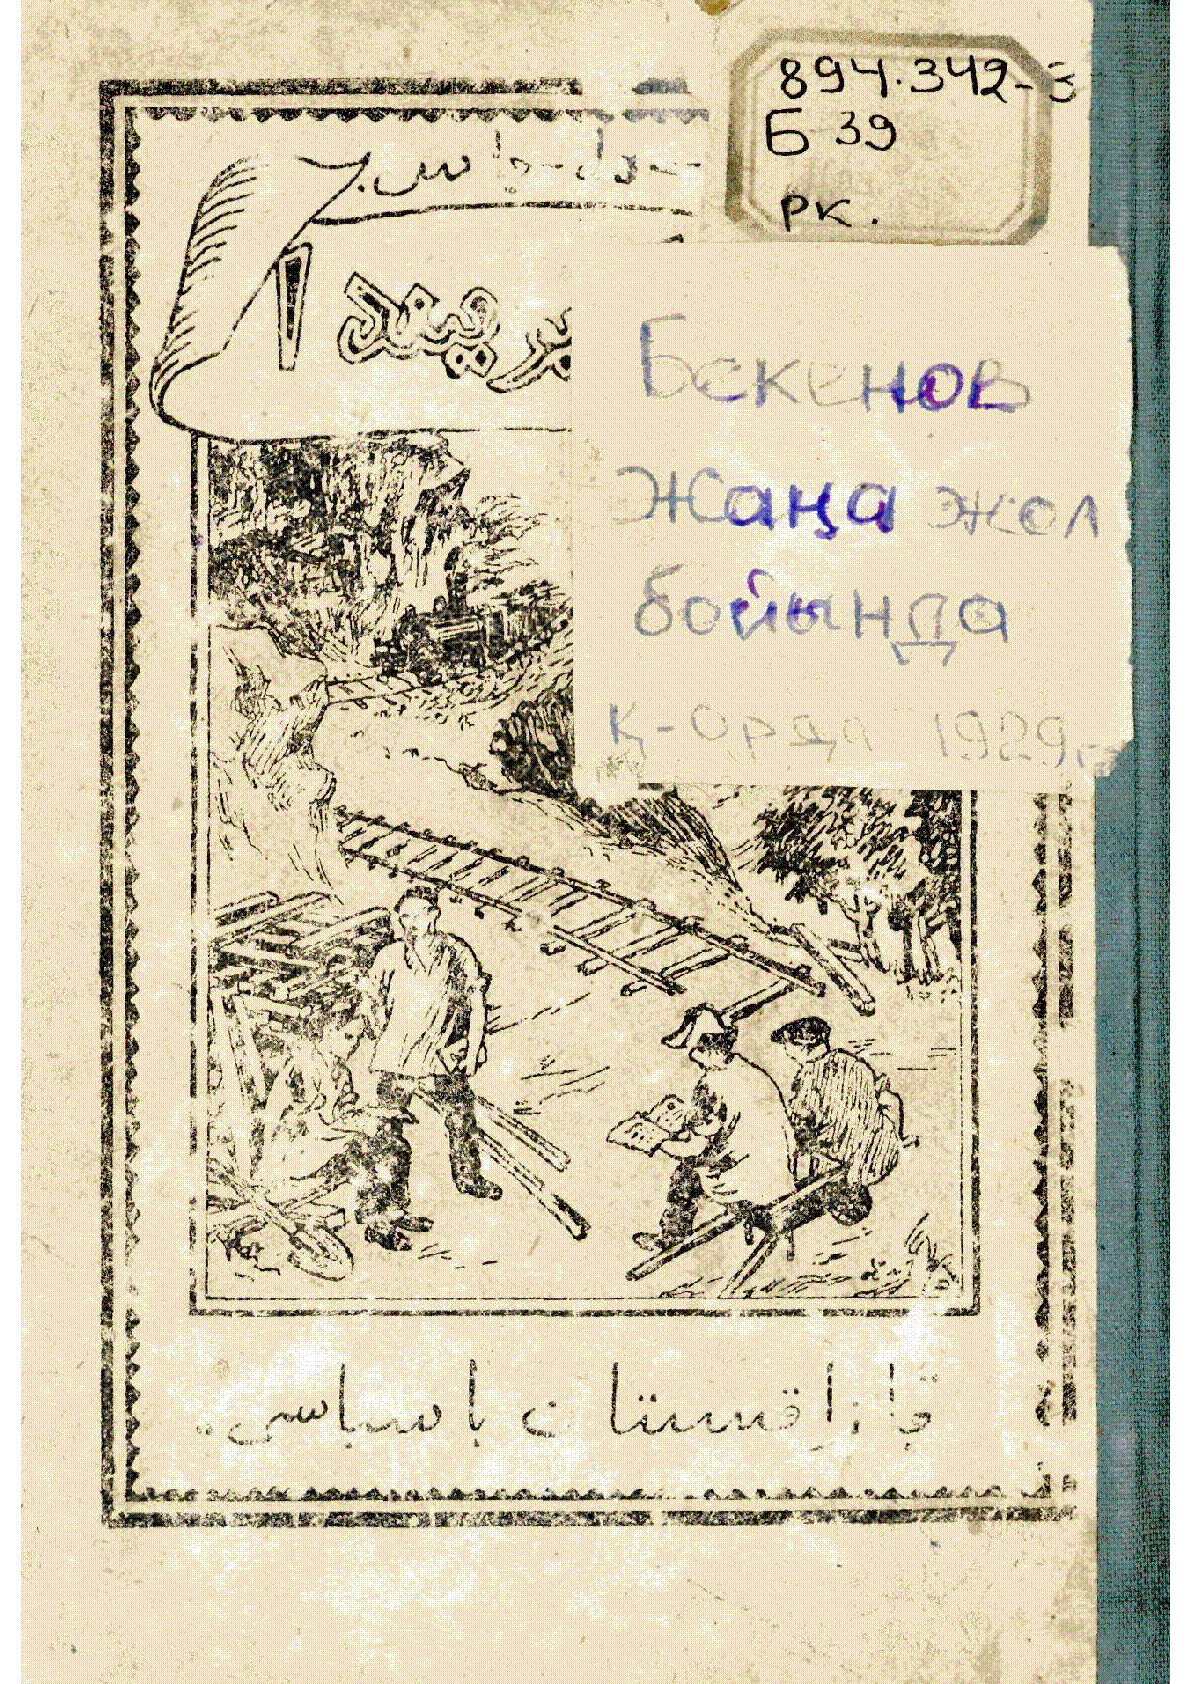 894.342-3
Б 39
рк.
Бекенов
Жаңа жол
бойында
Қ-Орда 1929
قازاقستان باسباسى.